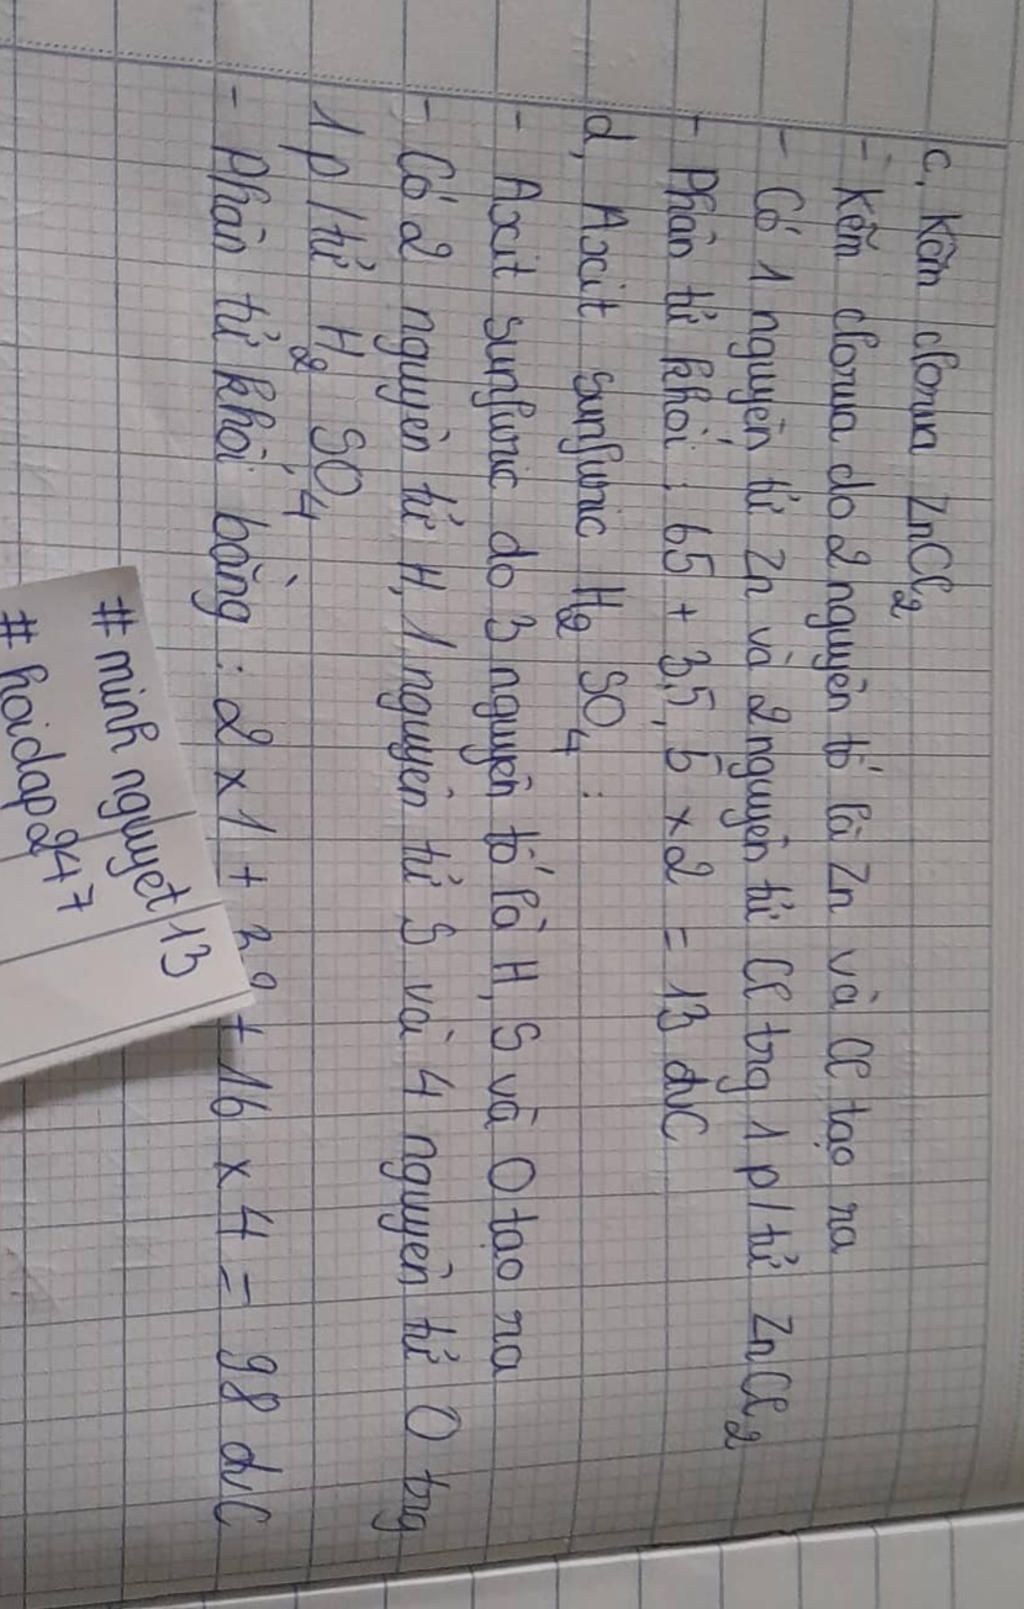 c, Kẽm clorua ZnCl₂
- Kẽm clorua do 2 nguyên tố là Zn và Cl tạo ra
- Có 1 nguyên tử Zn và 2 nguyên tử Cl trg 1 p/tử ZnCl₂
- Phân tử khối : 65 + 35,5 x 2 = 13 đvC
d, Axit sunfuric H₂ SO₄ :
- Axit sunfuric do 3 nguyên tố là H, S và O tạo ra
- Có 2 nguyên tử H, 1 nguyên tử S và 4 nguyên tử O trg
1 p/tử H₂ SO₄
- Phân tử khối bằng : 2 x 1 + + 16 x 4 = 98 đvC
# minh nguyet 13
# hoidap247